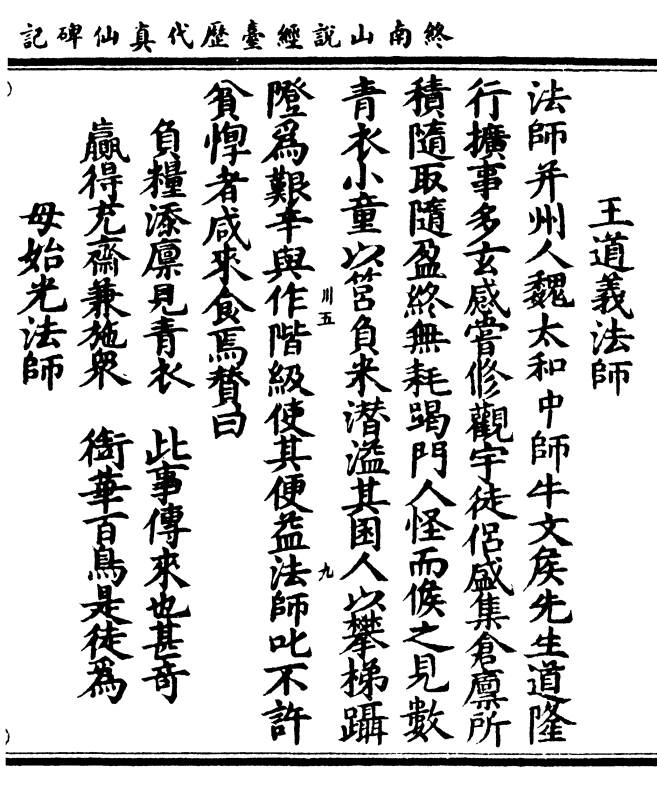 終南山說經臺歷代真仙碑記
王道義法師
法師并州人魏太和中師牛文侯先生道隆
行擴事多玄感嘗修觀宇徒侶盛集倉廩所
積隨取隨盈終無耗竭門人怪而候之見數
青衣小童以筥負米潛溢其囷人以攀梯躡
川五
九
隥爲艱辛與作階級使其便益法師叱不許
貧惸者咸來食焉贊曰
負糧添廩見青衣 此事傳來也甚奇
贏得充齋兼施衆 銜華百鳥是徒爲
母始光法師